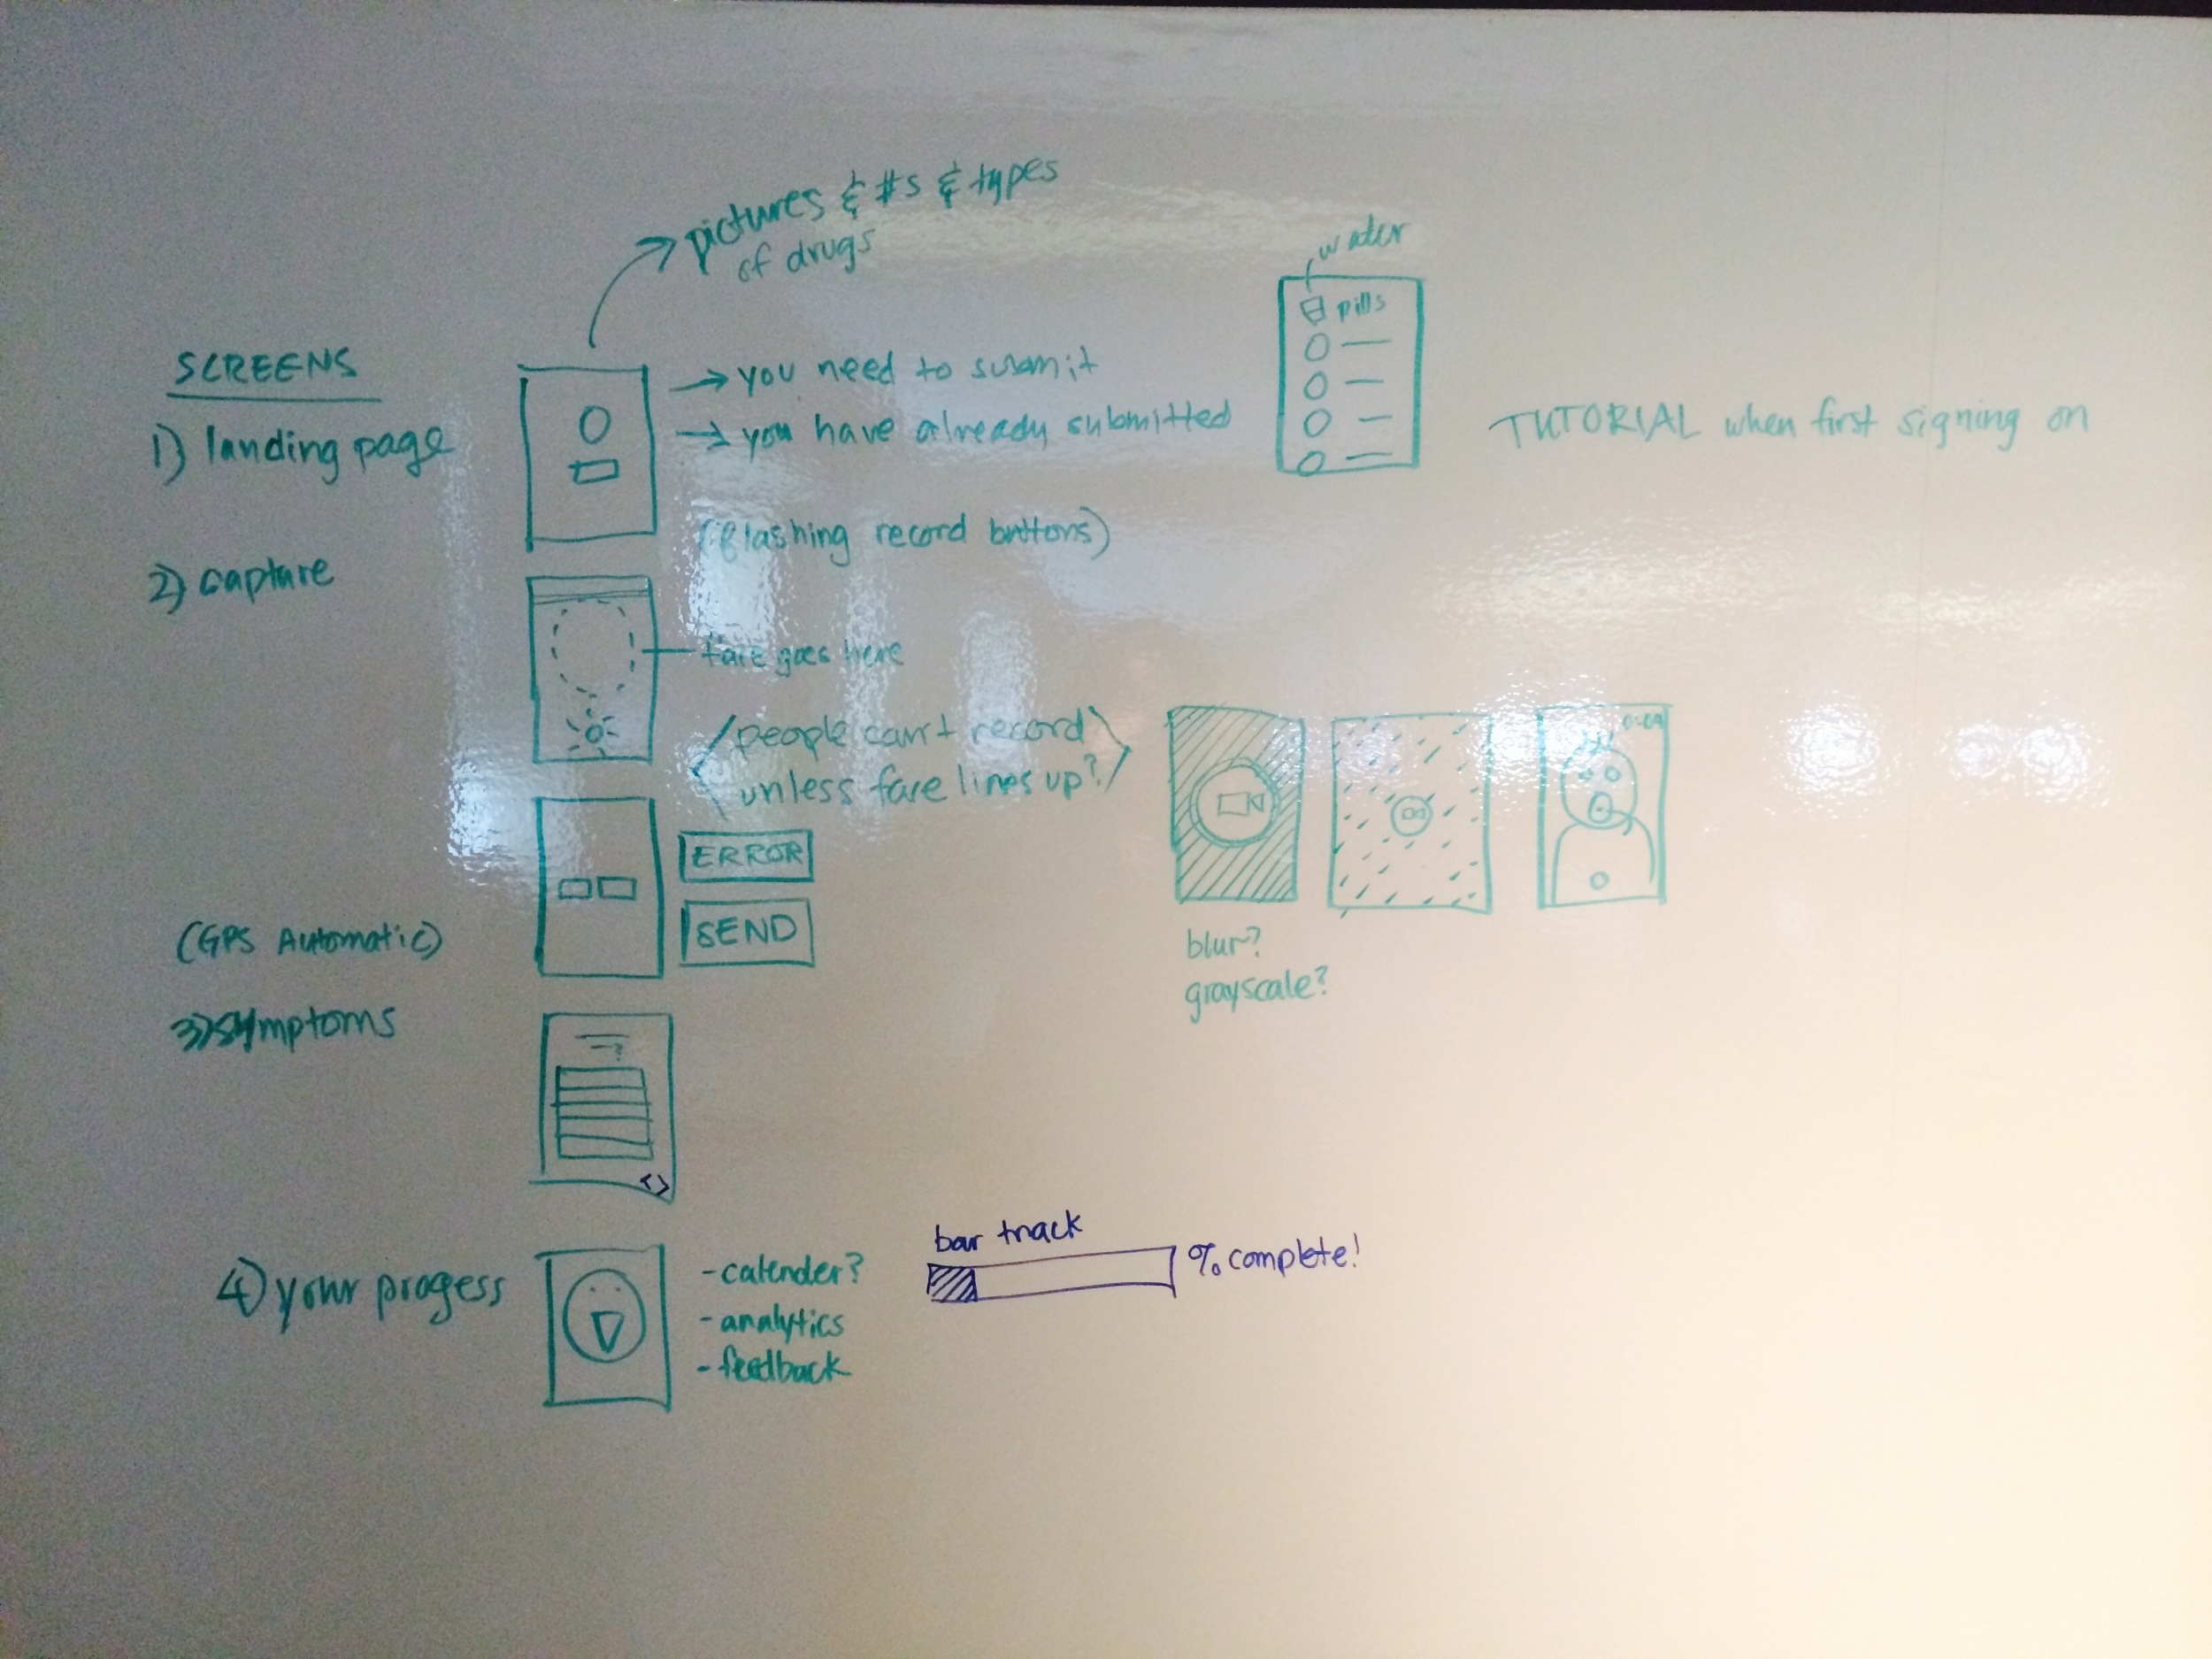 pictures & #s & types
of drugs
water
pills
SCREENS
1) landing page
→ you need to submit
→ you have already submitted
TUTORIAL when first signing on
(flashing record buttons)
2) capture
face goes here
people can't record
unless face lines up?
0:09
ERROR
SEND
(GPS Automatic)
blur?
grayscale?
3) symptoms
?
<>
4) your progess
- calender?
- analytics
- feedback
bar track
% complete!